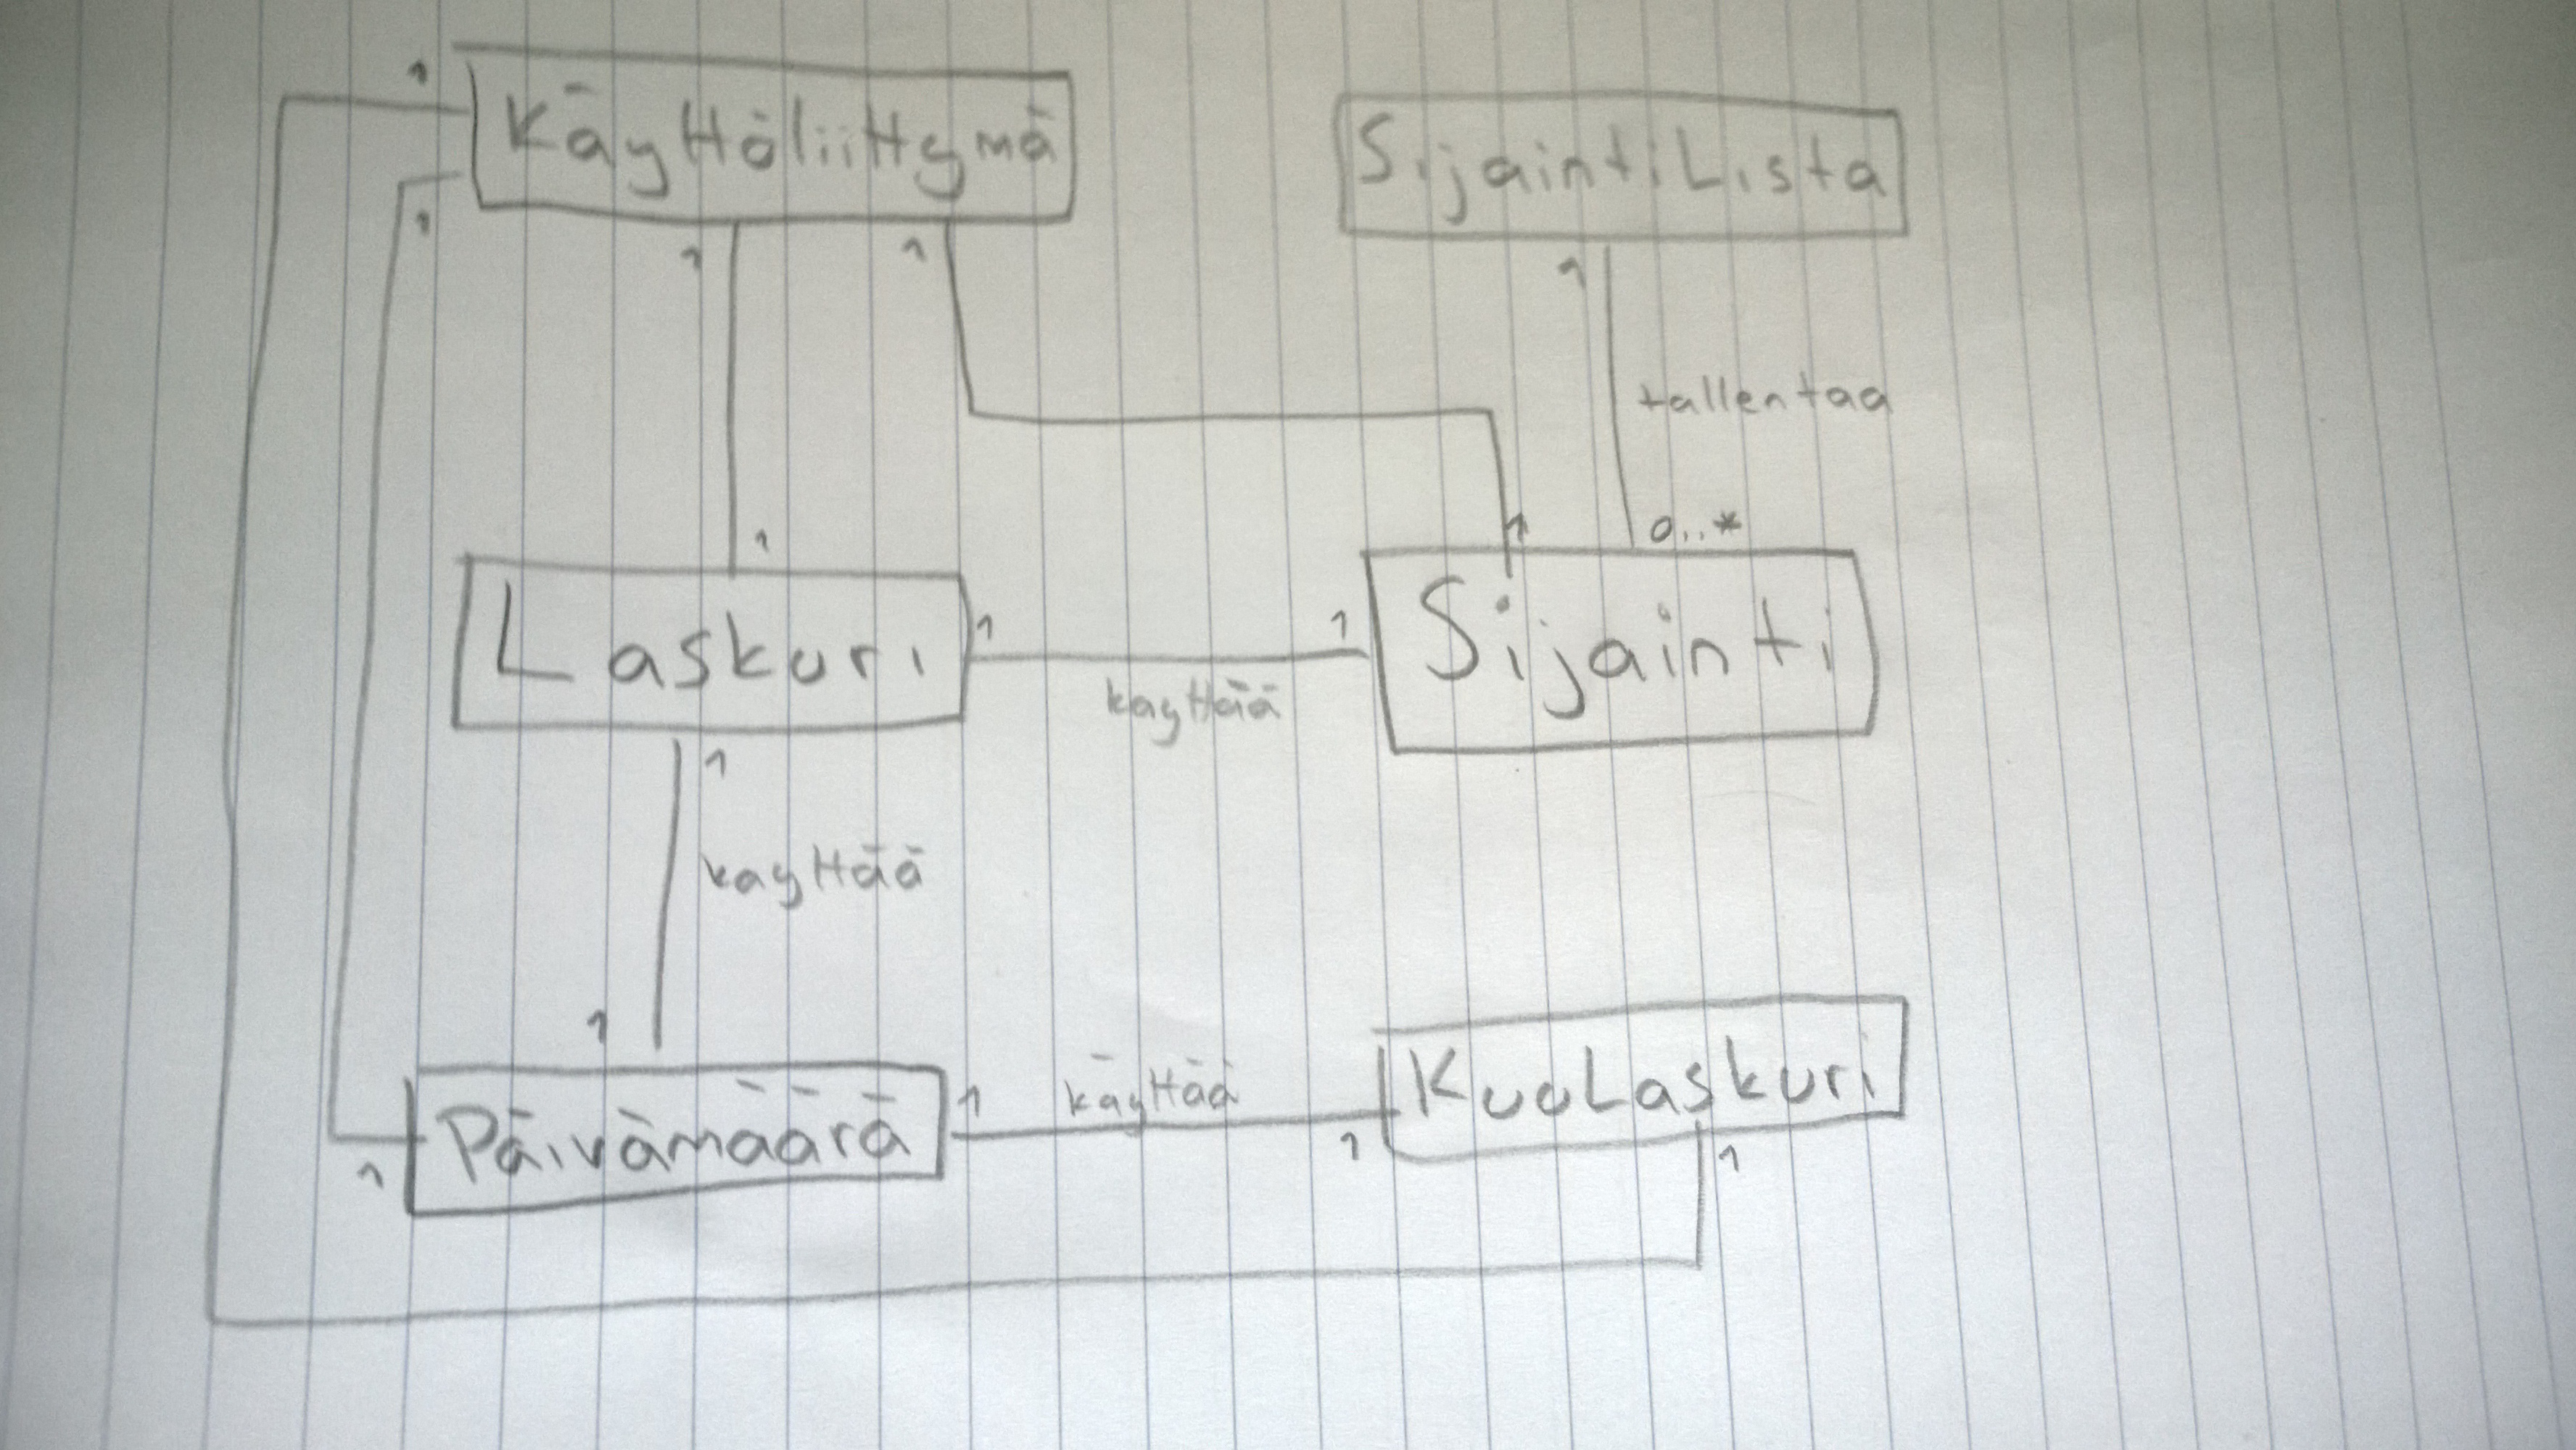 1
Käyttöliittymä
SijaintiLista
1
1
1
1
tallentaa
1
1
0..*
Laskuri
1
1
Sijainti
käyttää
1
käyttää
1
Päivämäärä
1
käyttää
KuuLaskuri
1
1
1